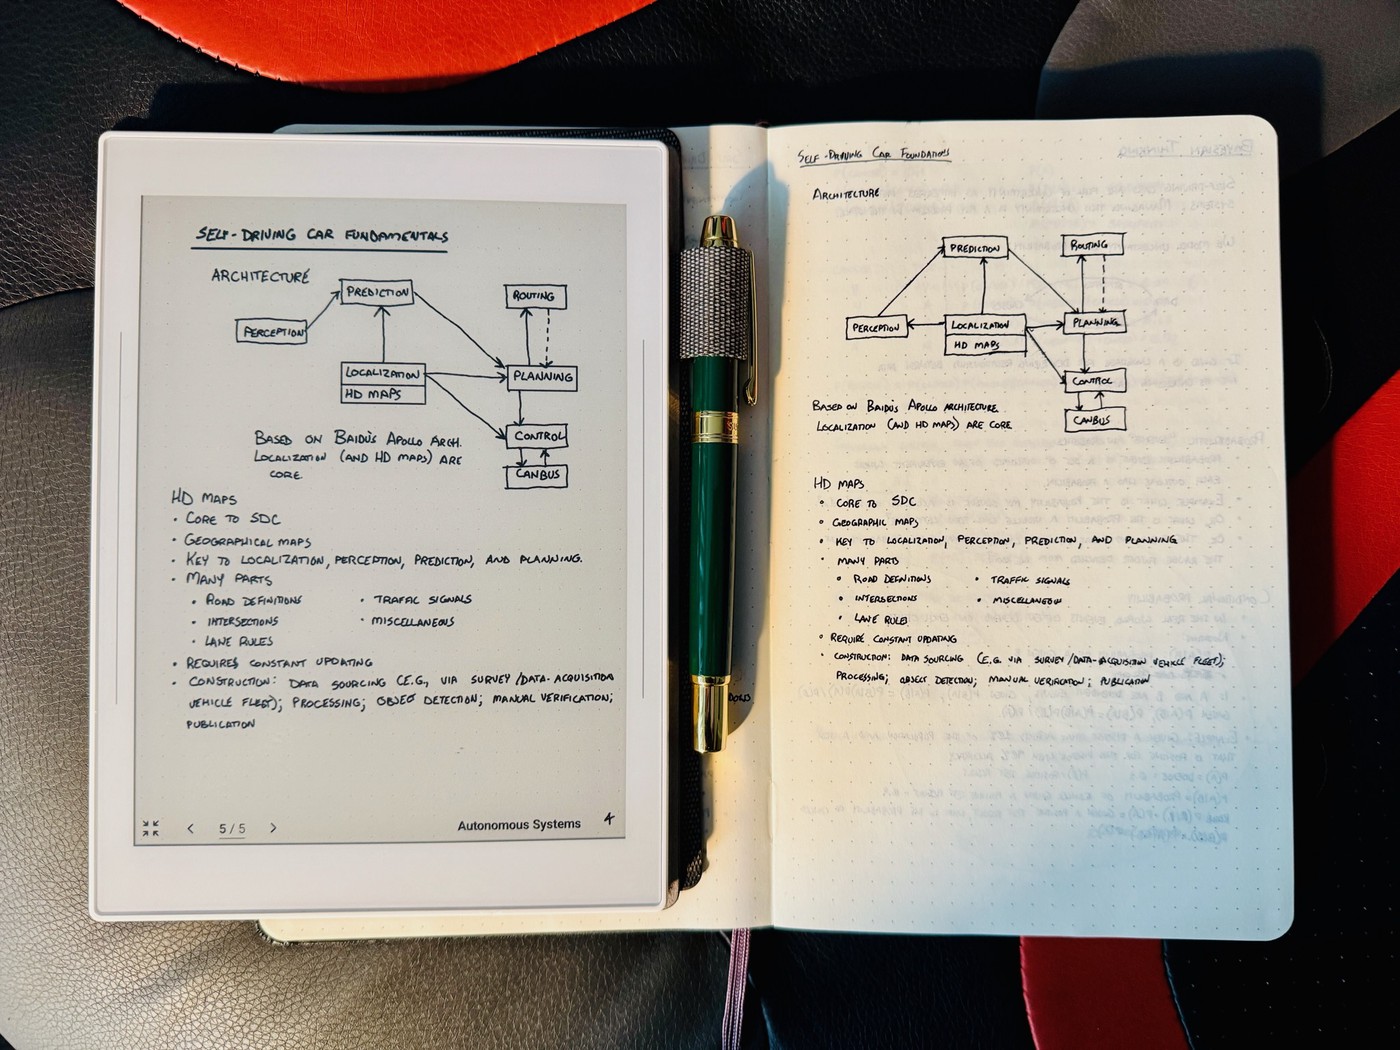 SELF-DRIVING CAR FUNDAMENTALS
ARCHITECTURE
PREDICTION
ROUTING
PERCEPTION
LOCALIZATION
PLANNING
HD MAPS
CONTROL
CANBUS
BASED ON BAIDU'S APOLLO ARCH.
LOCALIZATION (AND HD MAPS) ARE
CORE.
HD MAPS
• CORE TO SDC
• GEOGRAPHICAL MAPS
• KEY TO LOCALIZATION, PERCEPTION, PREDICTION, AND PLANNING.
• MANY PARTS
• ROAD DEFINITIONS • TRAFFIC SIGNALS
• INTERSECTIONS • MISCELLANEOUS
• LANE RULES
• REQUIRES CONSTANT UPDATING
• CONSTRUCTION: DATA SOURCING (E.G., VIA SURVEY/DATA-ACQUISITION
VEHICLE FLEET); PROCESSING; OBJECT DETECTION; MANUAL VERIFICATION;
PUBLICATION
5 / 5
Autonomous Systems
SELF-DRIVING CAR FOUNDATIONS
ARCHITECTURE
PREDICTION
ROUTING
PERCEPTION
LOCALIZATION
PLANNING
HD MAPS
CONTROL
CANBUS
BASED ON BAIDU'S APOLLO ARCHITECTURE
LOCALIZATION (AND HD MAPS) ARE CORE
HD MAPS
• CORE TO SDC
• GEOGRAPHIC MAPS
• KEY TO LOCALIZATION, PERCEPTION, PREDICTION, AND PLANNING
• MANY PARTS
• ROAD DEFINITIONS • TRAFFIC SIGNALS
• INTERSECTIONS • MISCELLANEOUS
• LANE RULES
• REQUIRE CONSTANT UPDATING
• CONSTRUCTION: DATA SOURCING (E.G. VIA SURVEY/DATA-ACQUISITION VEHICLE FLEET);
PROCESSING; OBJECT DETECTION; MANUAL VERIFICATION; PUBLICATION
BAYESIAN THINKING